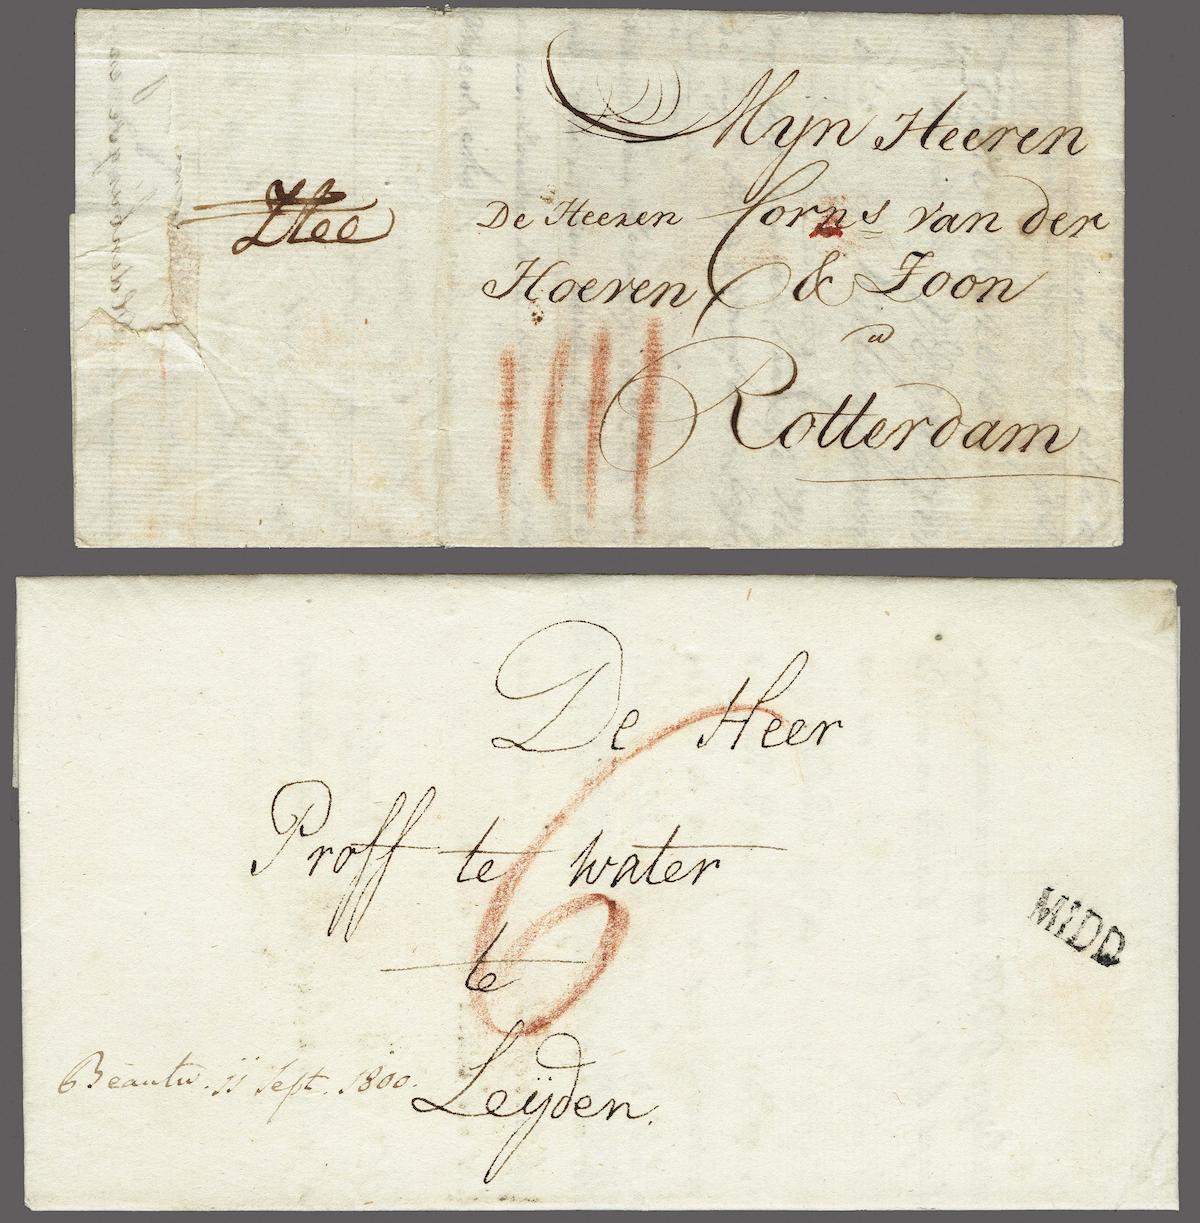 Mijn Heeren
De Heeren Corns van der
Hoeven & Zoon
a
Rotterdam
De Heer
Proff te water
te
Leijden.
6
MIDD
Beantw. 11 Sept. 1800.